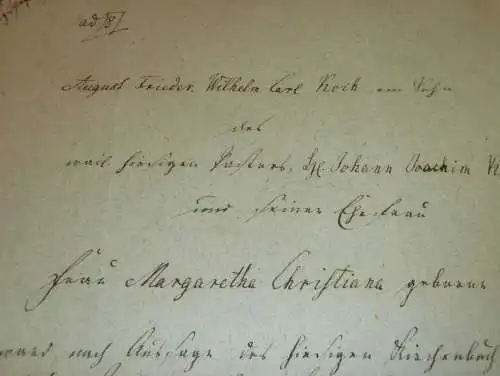 ad 8
August Frieder. Wilhelm Carl Koch ein Sohn
des
weil. hiesigen Pastors, H. Johann Joachim K
und seiner Ehefrau
Frau Margaretha Christiana geborne
ward nach Aussage des hiesigen Kirchenbuch